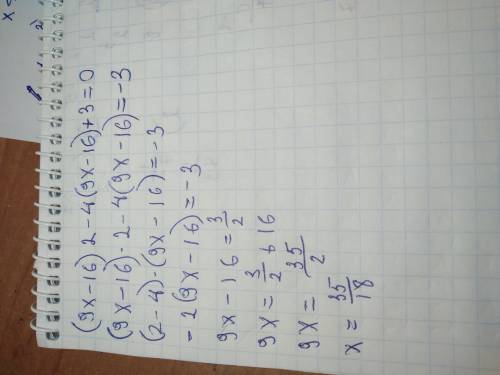 (9x-16)·2-4(9x-16)+3=0
(9x-16)·2-4(9x-16)=-3
(2-4)·(9x-16)=-3
-2(9x-16)=-3
9x-16=3/2
9x=3/2+16
9x=35/2
x=35/18